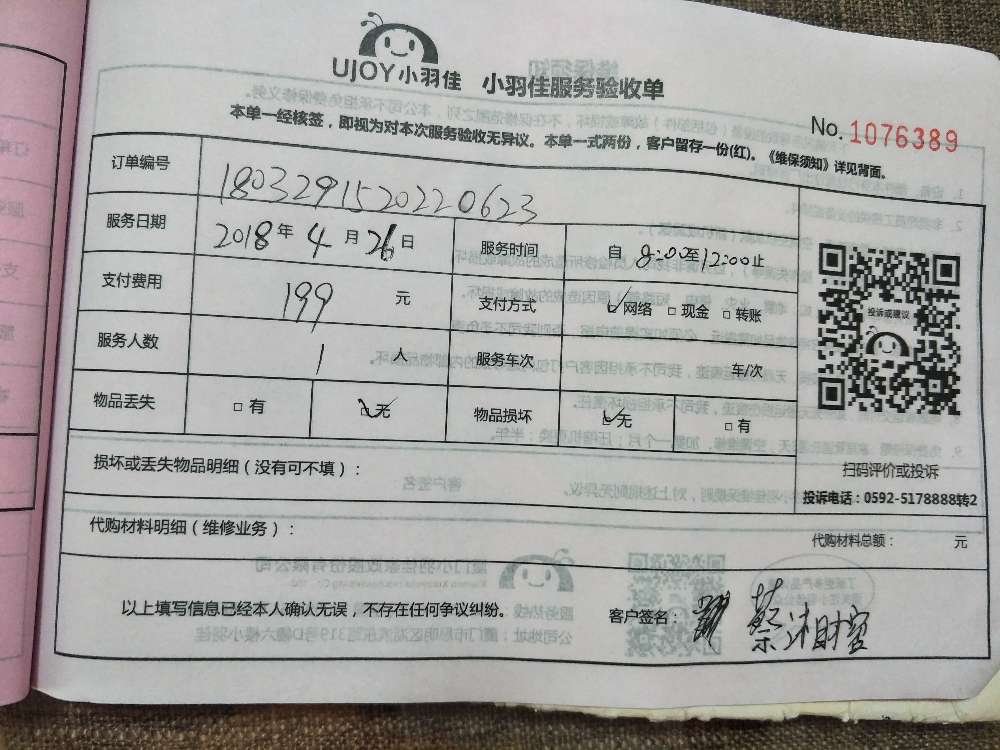 UJOY小羽佳 小羽佳服务验收单
本单一经核签，即视为对本次服务验收无异议。本单一式两份，客户留存一份(红)。《维保须知》详见背面。
No. 1076389
订单编号 1803291520220623
服务日期 2018年4月26日 服务时间 自8:00至12:00止
支付费用 199元 支付方式 ☑网络 □现金 □转账
投诉或建议
服务人数 1人 服务车次 车/次
物品丢失 □有 ☑无 物品损坏 ☑无 □有
损坏或丢失物品明细（没有可不填）：
扫码评价或投诉
投诉电话：0592-5178888转2
代购材料明细（维修业务）：
代购材料总额： 元
以上填写信息已经本人确认无误，不存在任何争议纠纷。
客户签名： 蔡湘